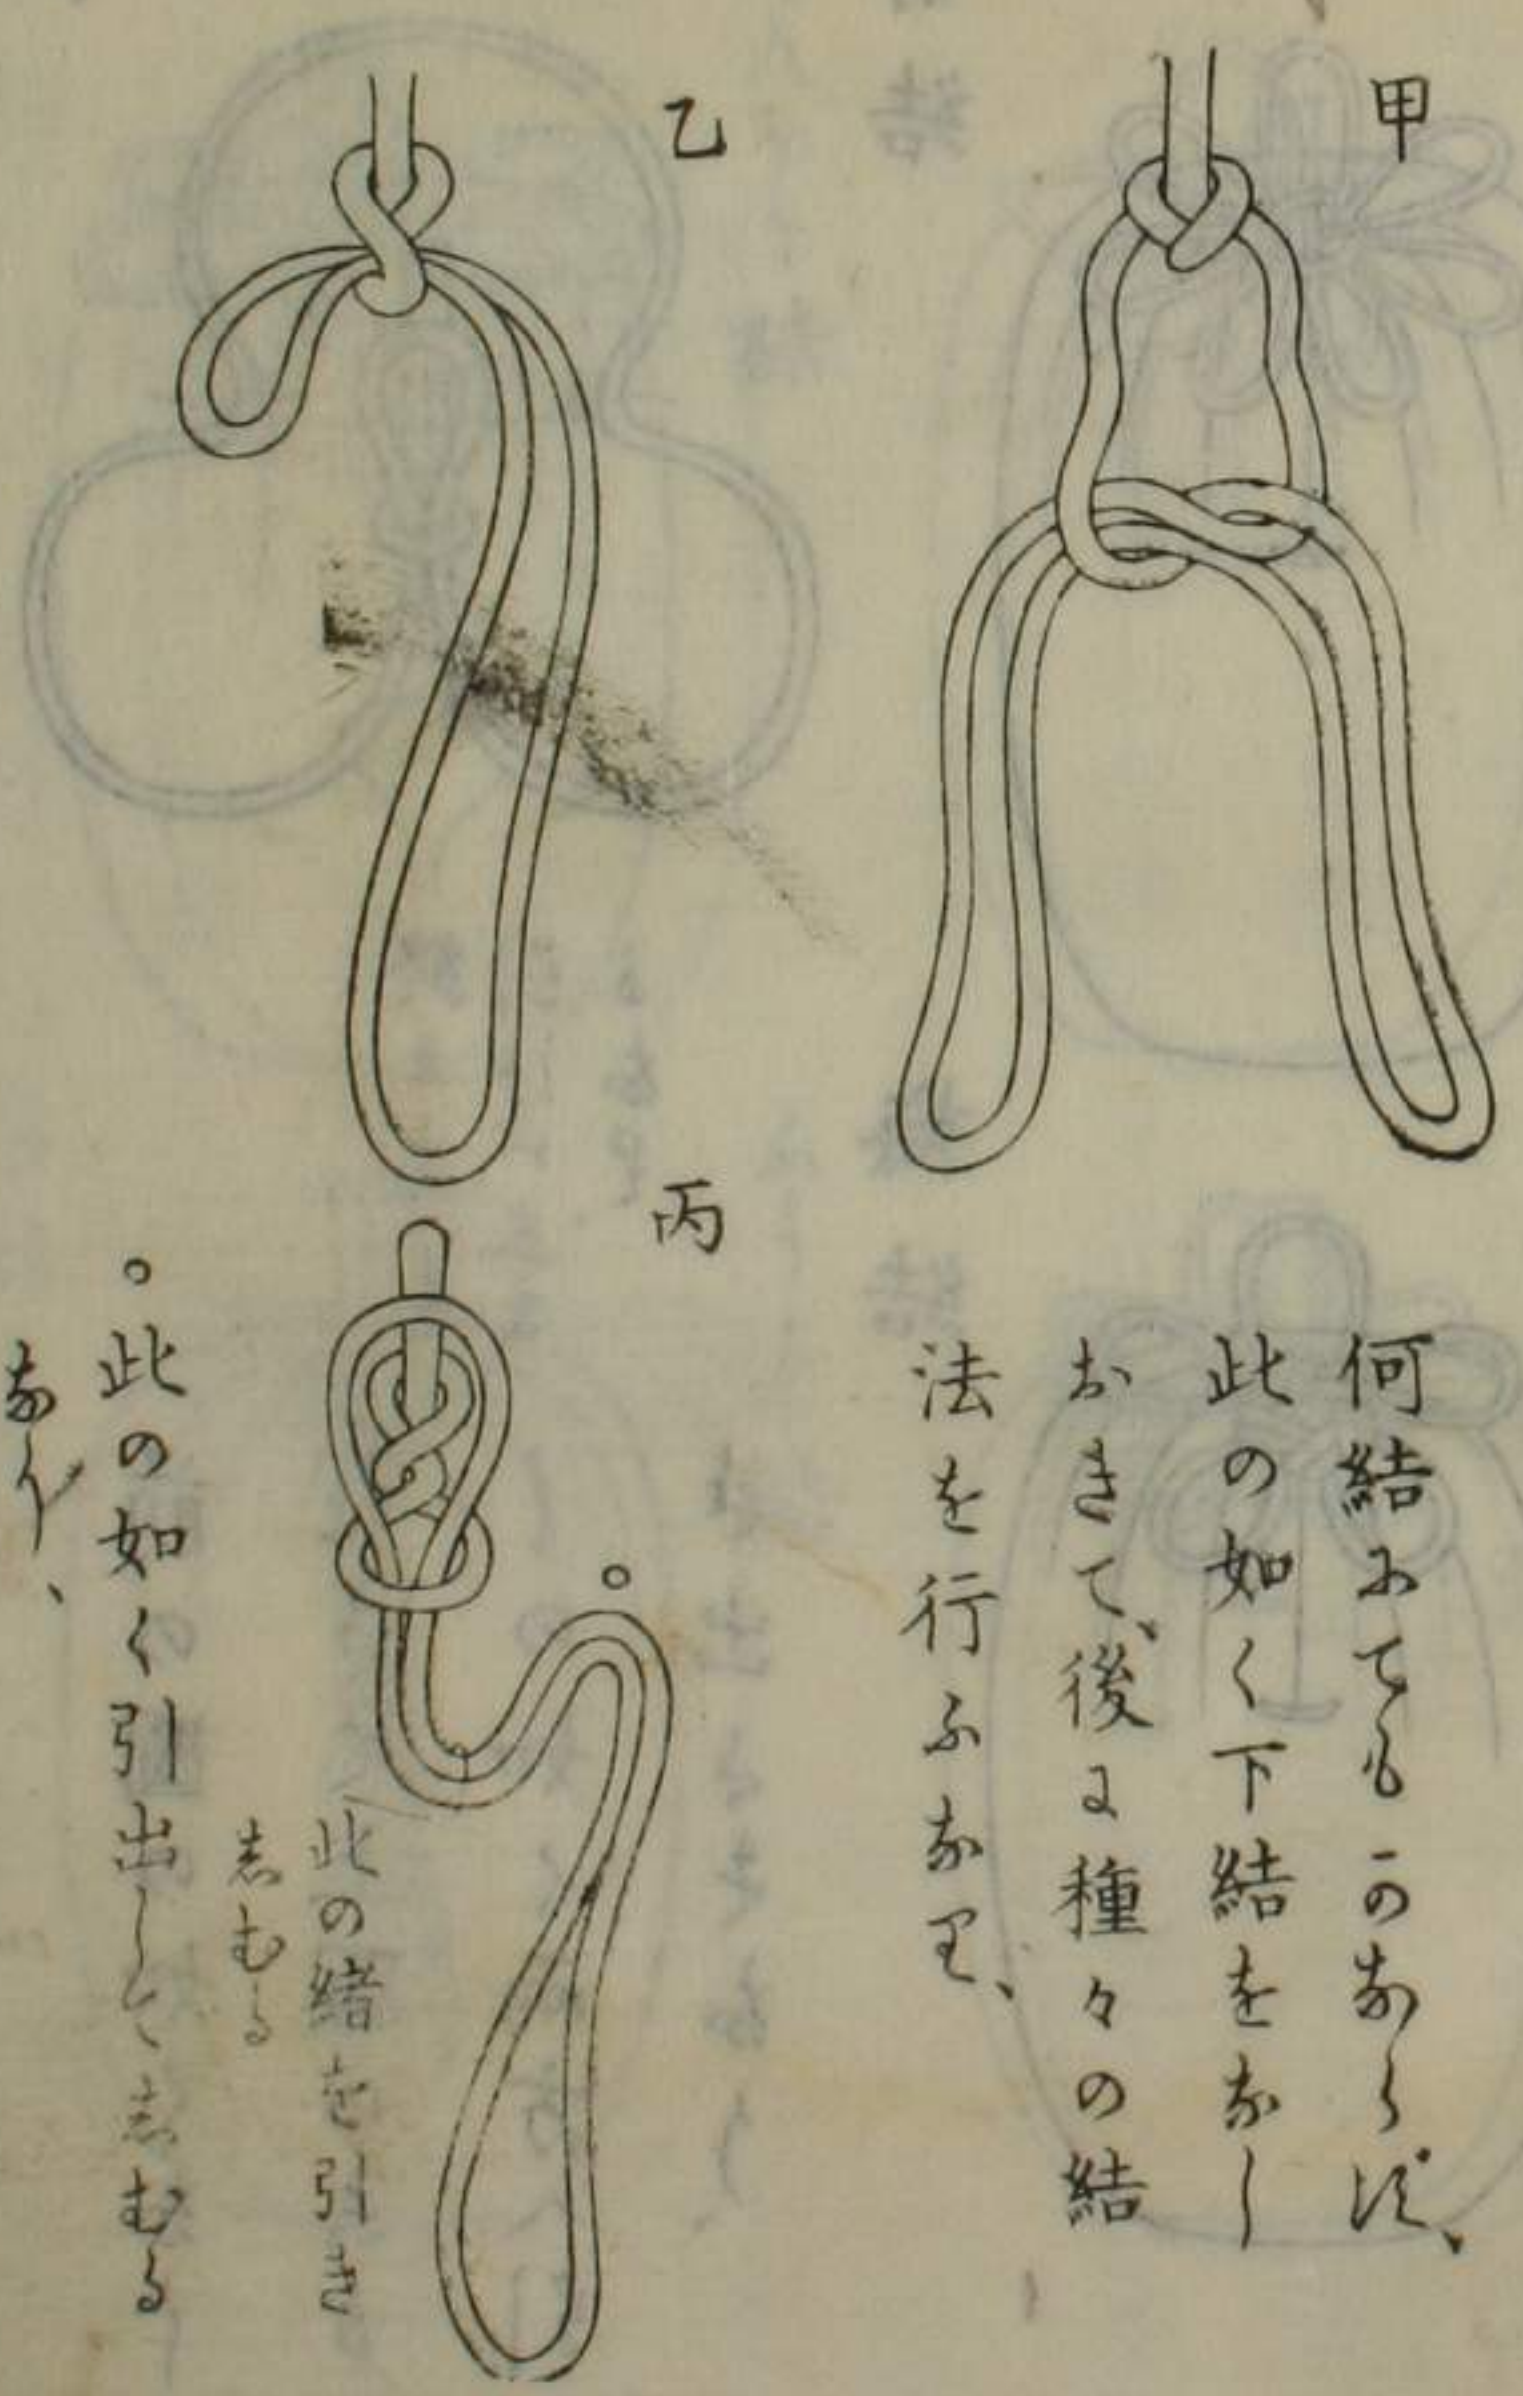 甲
何結にてもこのならば、
此の如く下結をなし
おきて、後に種々の結
法を行ふなり、
乙
丙
此の緒を引き
志むる
○此の如く引出して志むる
なり、
○